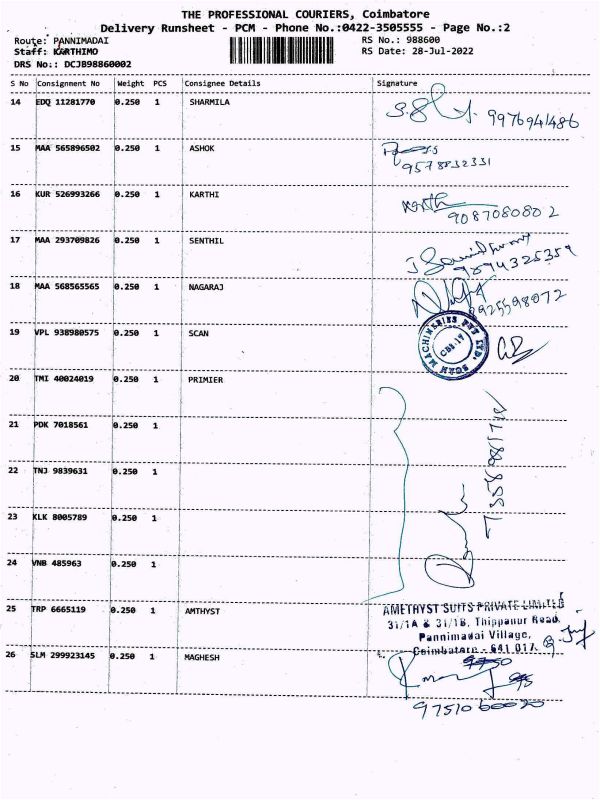 THE PROFESSIONAL COURIERS, Coimbatore
Delivery Runsheet - PCM - Phone No.:0422-3505555 - Page No.:2
Route: PANNIMADAI RS No.: 988600
Staff: KARTHIMO RS Date: 28-Jul-2022
DRS No.: DCJB98860002
S No Consignment No Weight PCS Consignee Details Signature
14 EDQ 11281770 0.250 1 SHARMILA
9976941486
15 MAA 565896502 0.250 1 ASHOK
9578832331
16 KUR 526993266 0.250 1 KARTHI
9087080802
17 MAA 293709826 0.250 1 SENTHIL
9894325359
18 MAA 568565565 0.250 1 NAGARAJ
9925598072
19 VPL 938980575 0.250 1 SCAN
SCAN MACHINERIES PVT LTD.
CBE-17
20 TMI 40024019 0.250 1 PRIMIER
21 PDK 7018561 0.250 1
22 TNJ 9839631 0.250 1
23 KLK 8005789 0.250 1
24 VNB 485963 0.250 1
25 TRP 6665119 0.250 1 AMTHYST
AMETHYST SUITS PRIVATE LIMITED
31/1A & 31/1B, Thippanur Road,
Pannimadai Village,
Coimbatore - 641 017.
26 SLM 299923145 0.250 1 MAGHESH
9751060020